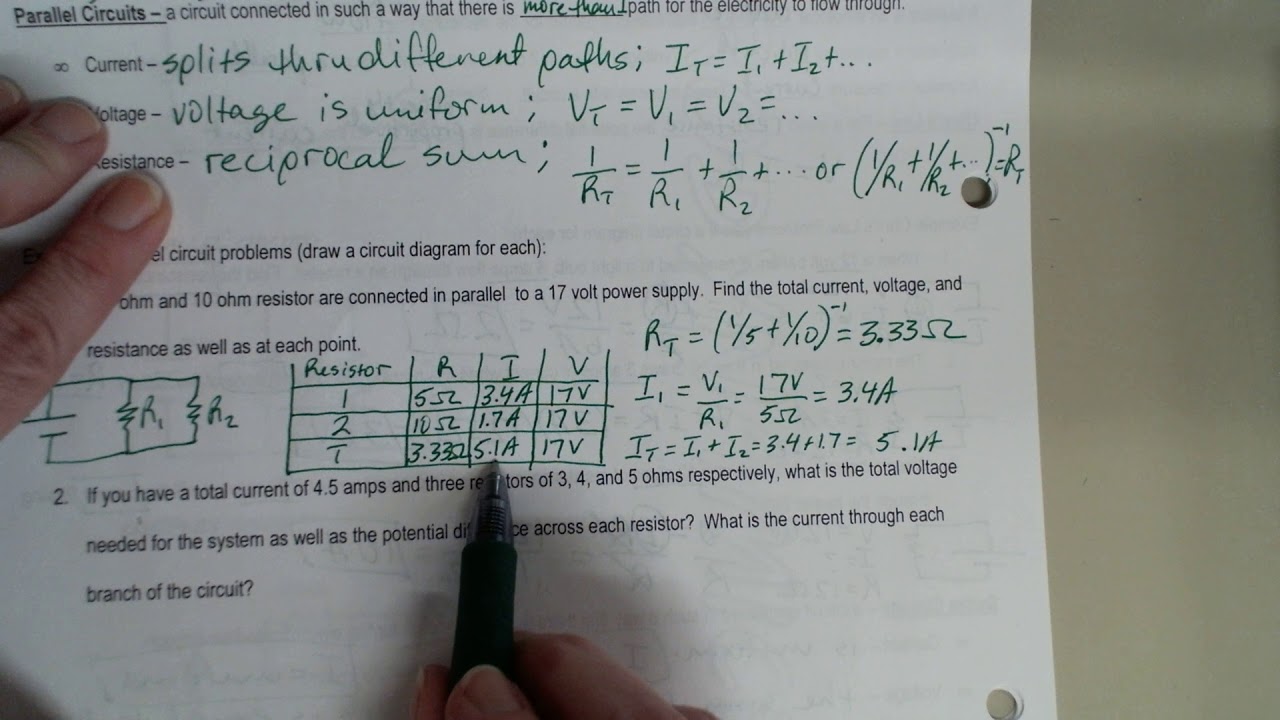 Parallel Circuits – a circuit connected in such a way that there is more than 1 path for the electricity to flow through.
∞ Current – splits thru different paths; I_T = I₁ + I₂ + ...
Voltage – voltage is uniform; V_T = V₁ = V₂ = ...
Resistance – reciprocal sum; 1/R_T = 1/R₁ + 1/R₂ + ... or (1/R₁ + 1/R₂ + ...)⁻¹ = R_T
circuit problems (draw a circuit diagram for each):
ohm and 10 ohm resistor are connected in parallel to a 17 volt power supply. Find the total current, voltage, and
resistance as well as at each point.
R_T = (1/5 + 1/10)⁻¹ = 3.33Ω
Resistor R I V
1 5Ω 3.4A 17V
2 10Ω 1.7A 17V
T 3.33Ω 5.1A 17V
R₁ R₂
I₁ = V₁/R₁ = 17V/5Ω = 3.4A
I_T = I₁ + I₂ = 3.4 + 1.7 = 5.1A
2. If you have a total current of 4.5 amps and three resistors of 3, 4, and 5 ohms respectively, what is the total voltage
needed for the system as well as the potential difference across each resistor? What is the current through each
branch of the circuit?